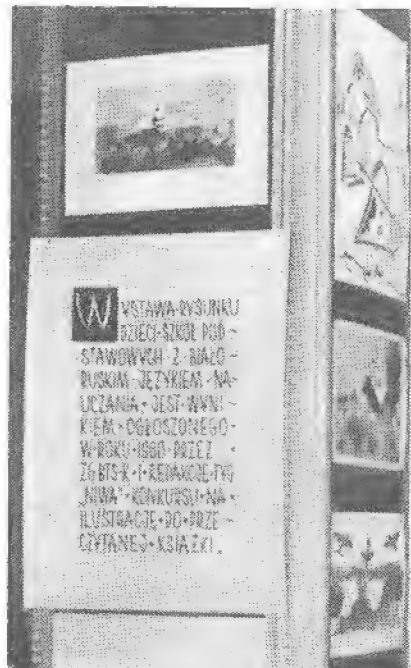 WYSTAWA·RYSUNKU
DZIECI·SZKÓŁ POD-
STAWOWYCH Z BIAŁO-
RUSKIM JĘZYKIEM NA-
UCZANIA·JEST WYNI-
KIEM·OGŁOSZONEGO·
W·ROKU·1980·PRZEZ
ZG BTSK·I·REDAKCJĘ·TYG
„NIWA"·KONKURSU·NA·
ILUSTRACJĘ·DO·PRZE-
CZYTANEJ·KSIĄŻKI.